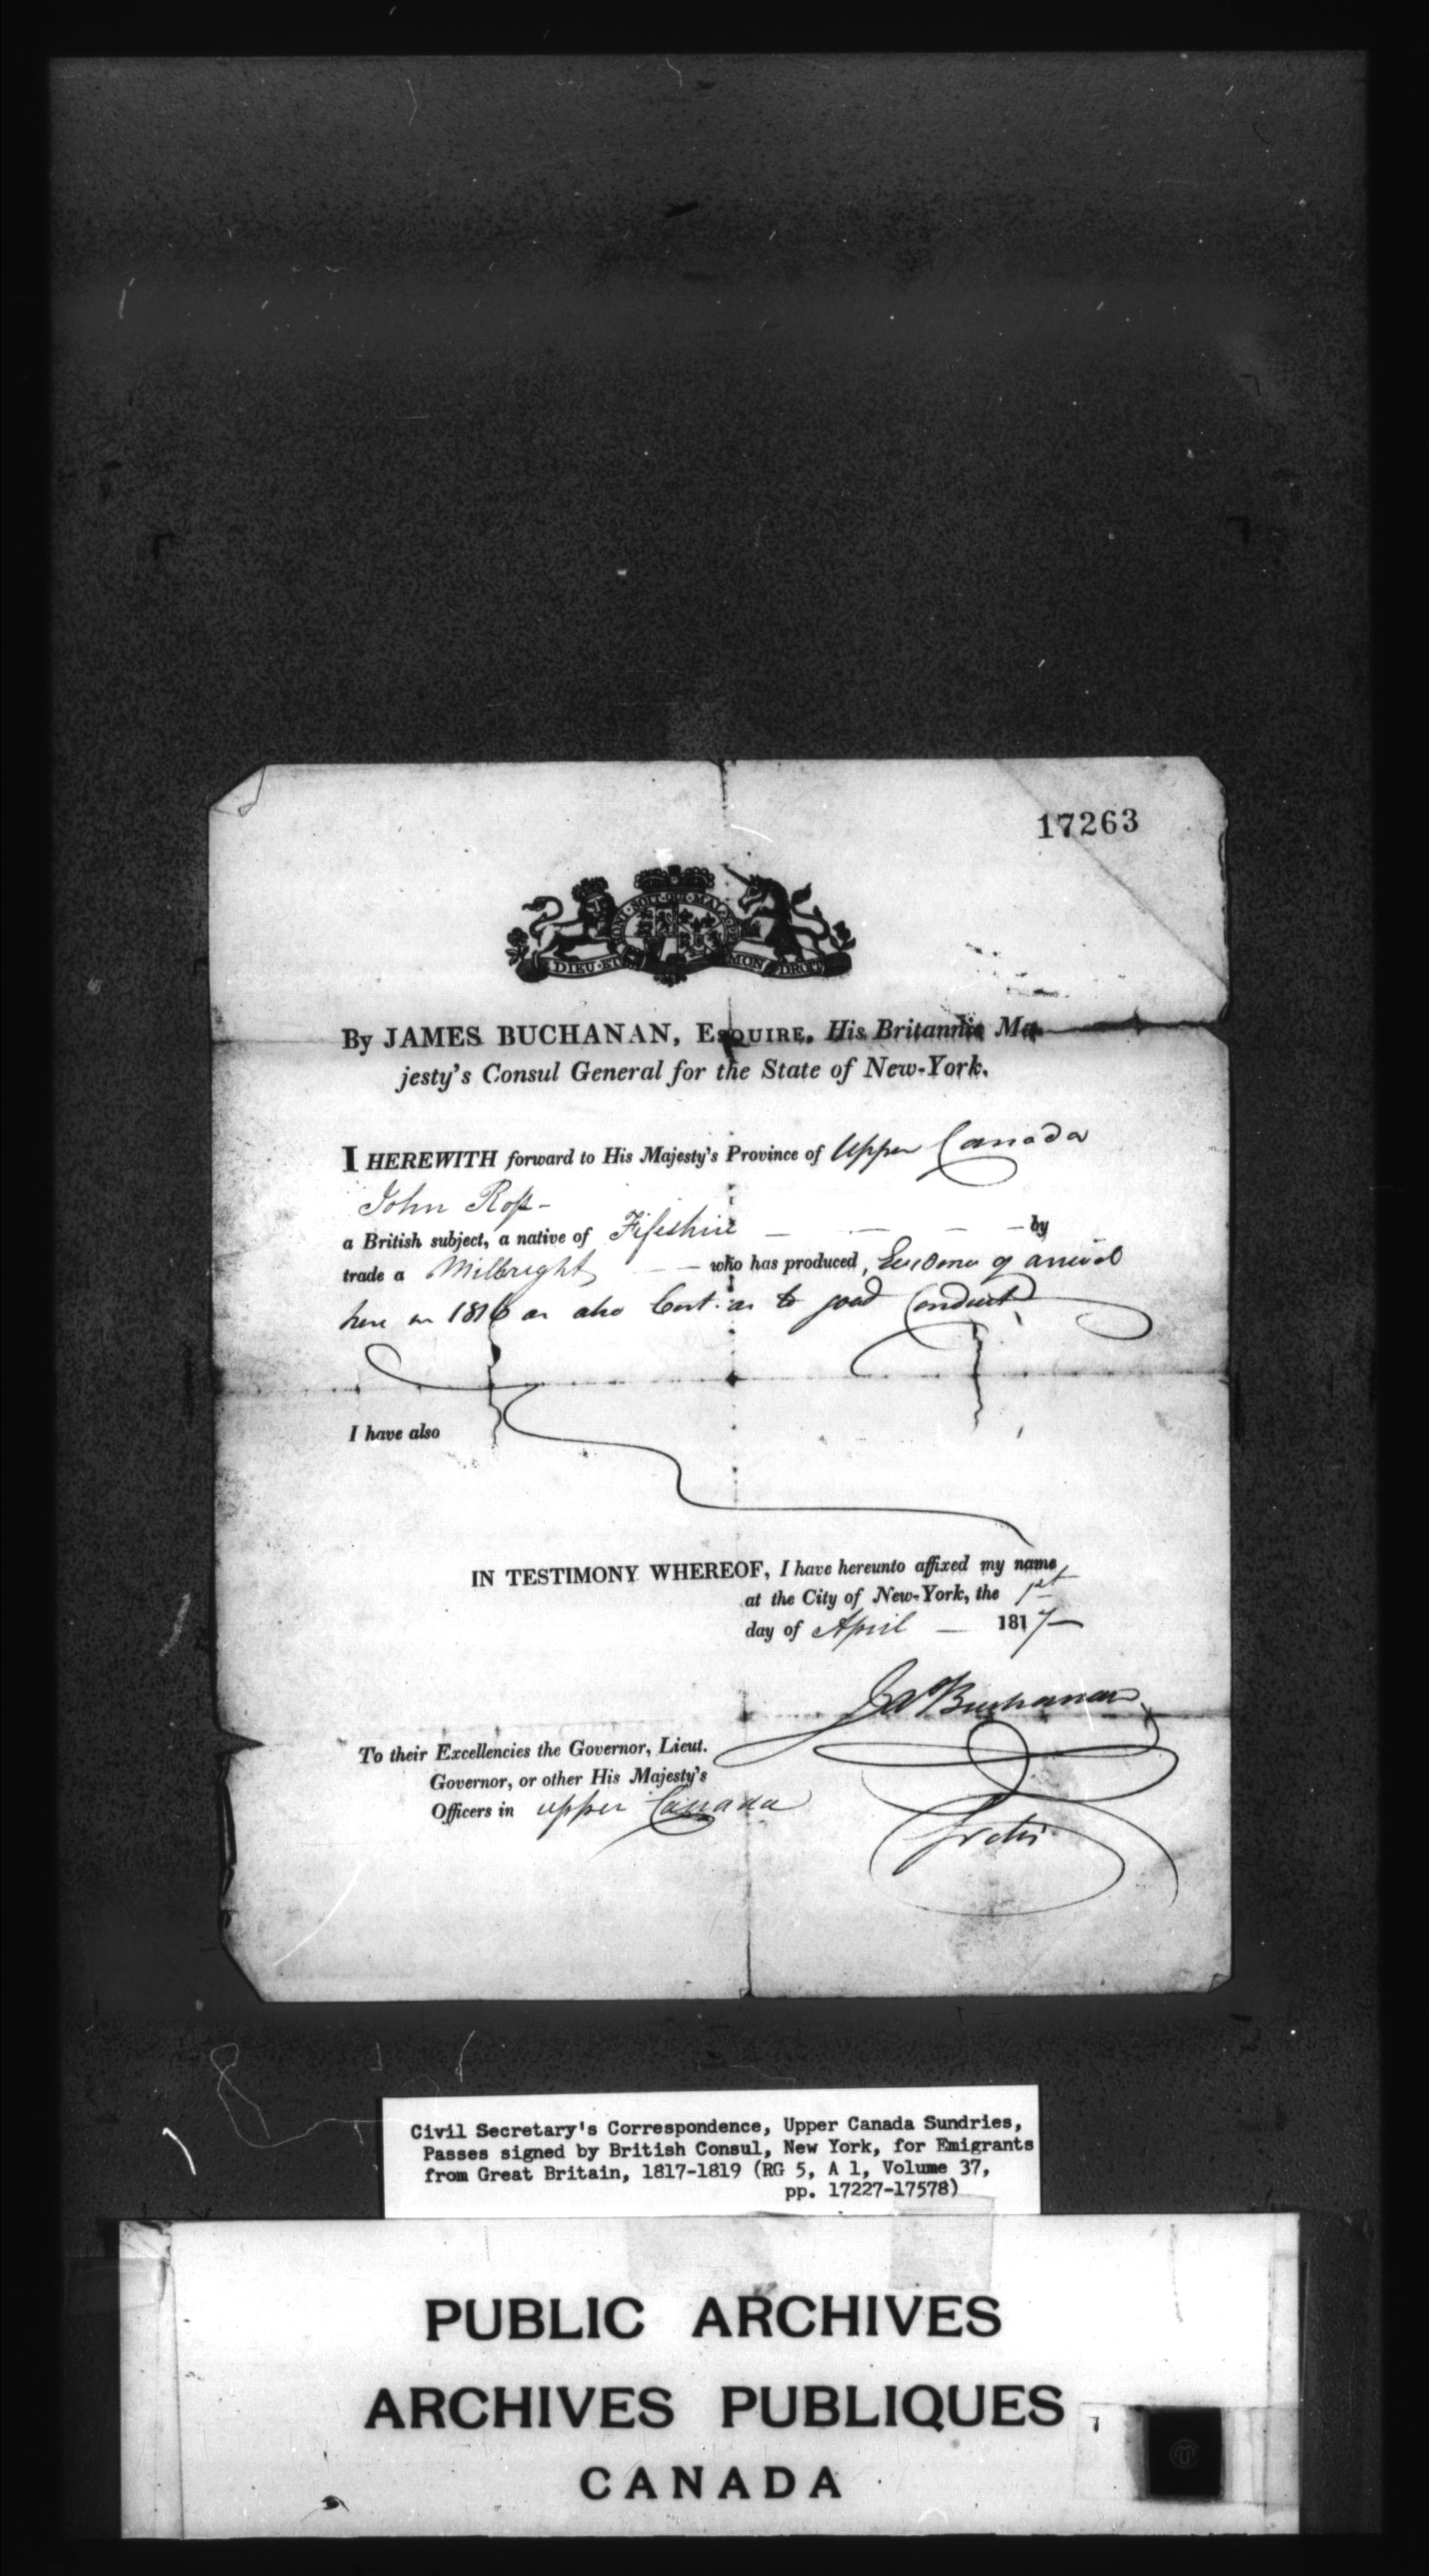 17263
HONI·SOIT·QUI·MAL·
DIEU·ET MON DROIT
By JAMES BUCHANAN, ESQUIRE, His Britannic Ma-
jesty's Consul General for the State of New-York.
I HEREWITH forward to His Majesty's Province of Upper Canada
John Ross -
a British subject, a native of Fifeshire — — — — by
trade a Millwright — — who has produced, Evidence of arrival
here in 1816 as also Cert. as to good Conduct
I have also
IN TESTIMONY WHEREOF, I have hereunto affixed my name
at the City of New-York, the 1st
day of April — 1817 —
Ja Buchanan
To their Excellencies the Governor, Lieut.
Governor, or other His Majesty's
Officers in upper Canada
Gratis
Civil Secretary's Correspondence, Upper Canada Sundries,
Passes signed by British Consul, New York, for Emigrants
from Great Britain, 1817-1819 (RG 5, A 1, Volume 37,
pp. 17227-17578)
PUBLIC ARCHIVES
ARCHIVES PUBLIQUES
CANADA